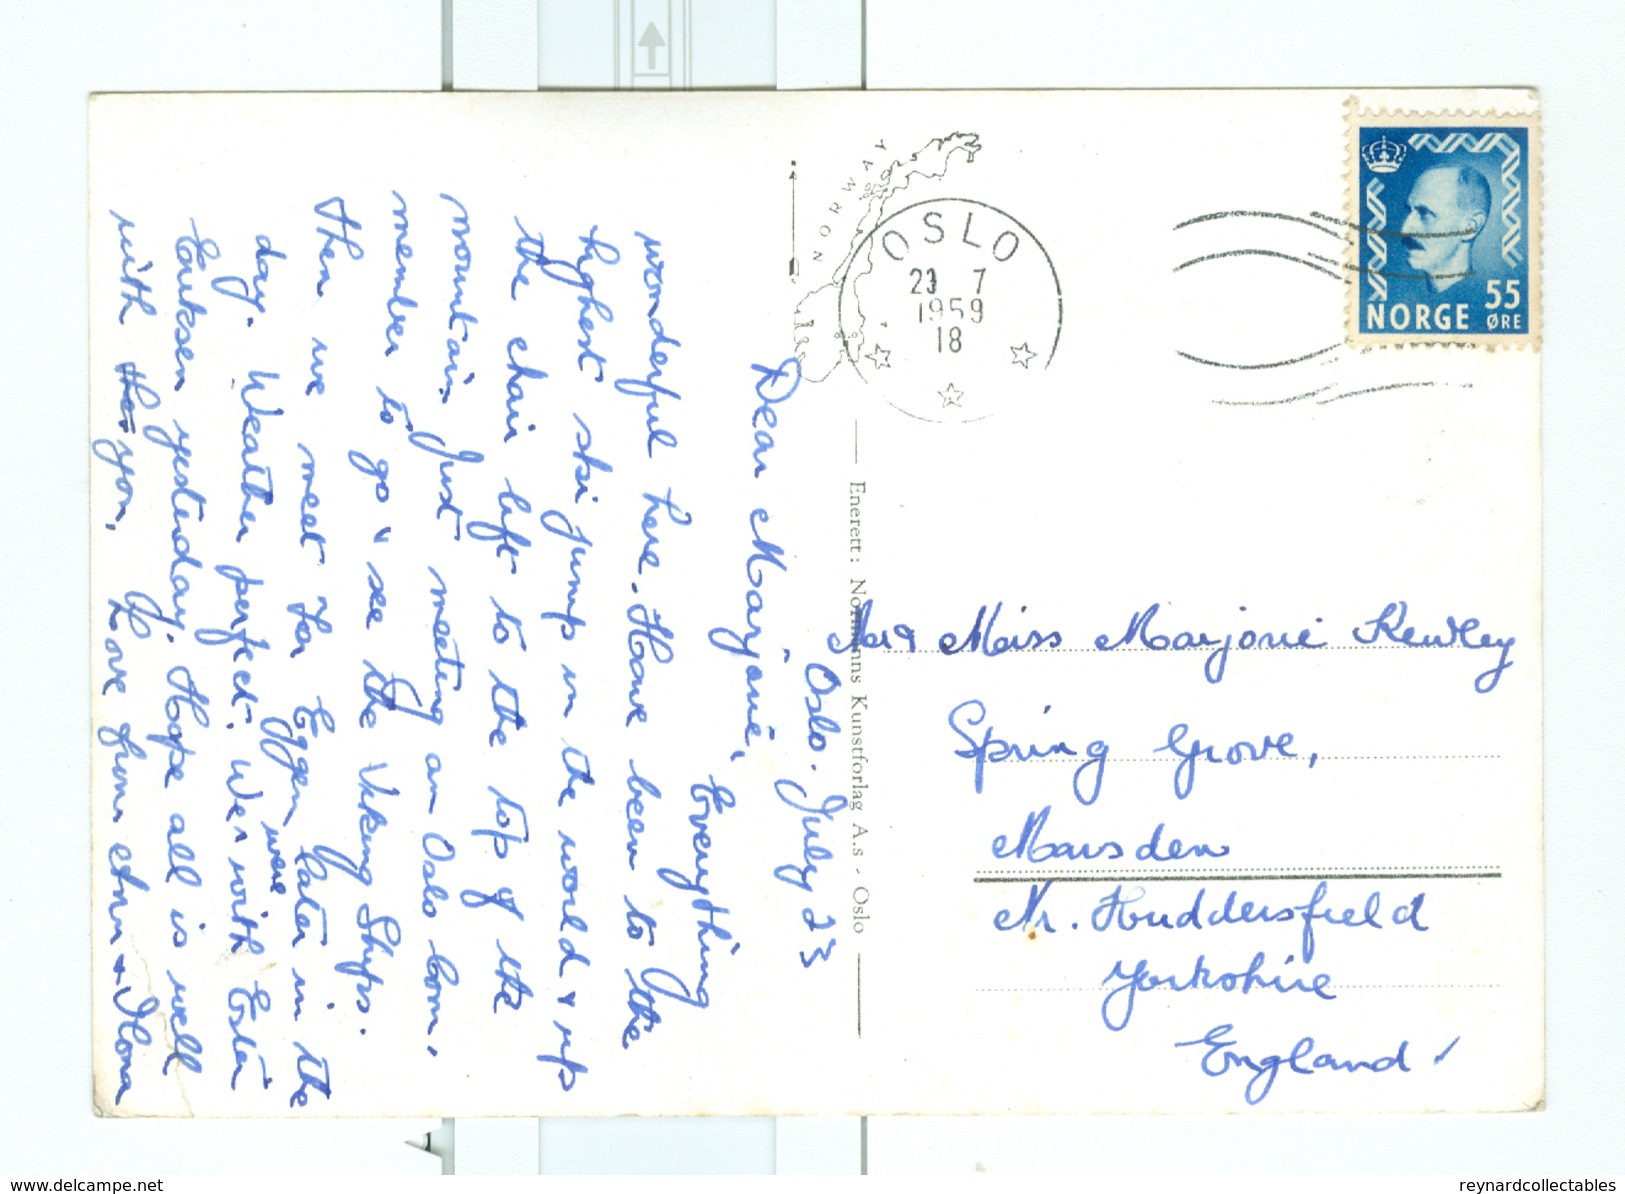 Oslo. July 23
Dear Marjorie,
Everything
wonderful here. Have been to the
highest ski jump in the world & up
the chair lift to the top of the
mountain. Just meeting an Oslo born,
member to go & see the Viking Ships.
Then we meet Per Eggen later in the
day. Weather perfect. We were with Ester
yesterday. Hope all is well
with you. Love from Ann & Ilona
NORWAY
OSLO
23 7
1959
18
NORGE 55 ØRE
Enerett: Normanns Kunstforlag A.s - Oslo
Miss Marjorie Kewley
Spring Grove,
Marsden
Nr. Huddersfield
Yorkshire
England
delcampe.net
reynardcollectables